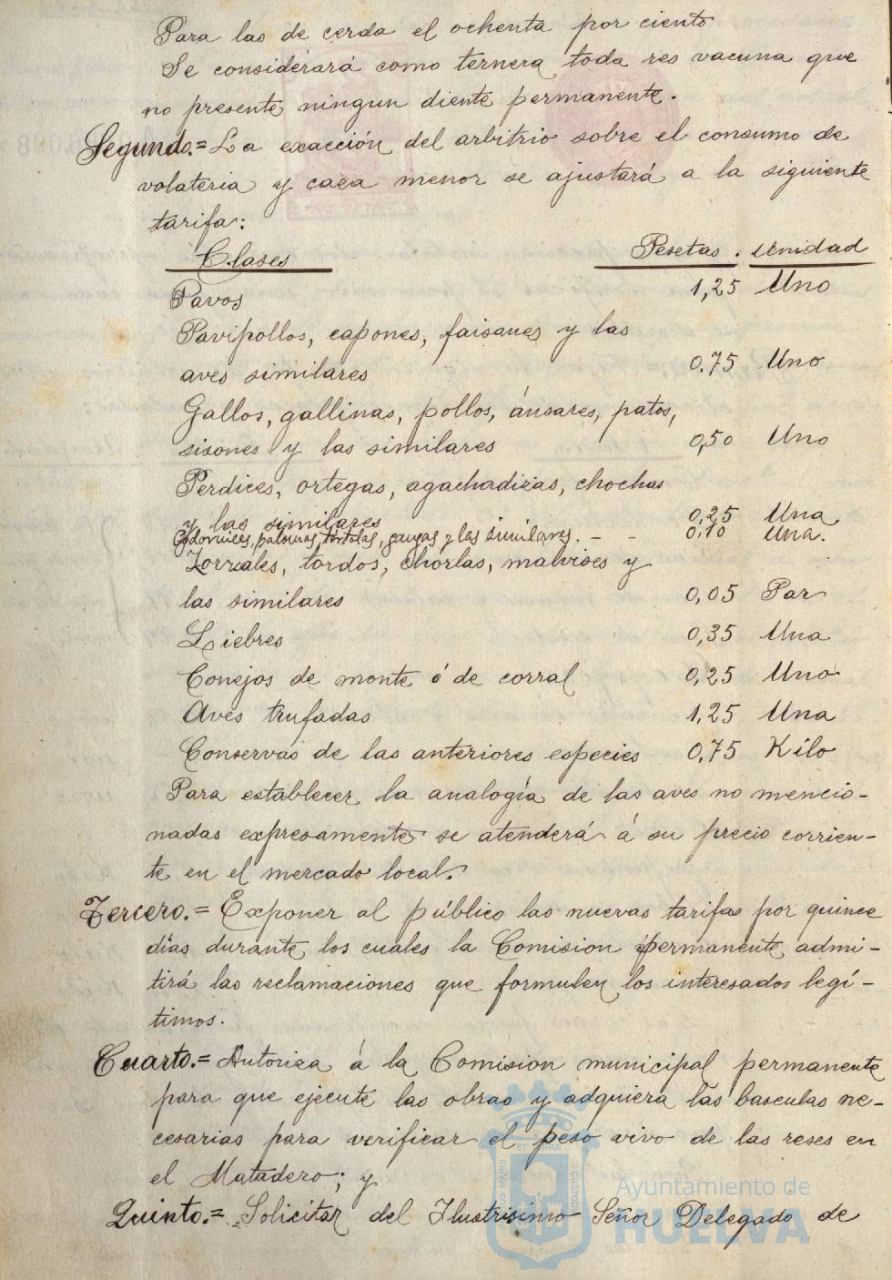 Para las de cerda el ochenta por ciento
Se considerará como ternera toda res vacuna que
no presente ningun diente permanente.
Segundo.= La exacción del arbitrio sobre el consumo de
volateria y caza menor se ajustará a la siguiente
tarifa:
Clases Pesetas. Unidad
Pavos 1,25 Uno
Pavipollos, capones, faisanes y las
aves similares 0.75 Uno
Gallos, gallinas, pollos, ánsares, patos,
sisones y las similares 0,50 Uno
Perdices, ortegas, agachadizas, chochas
y las similares 0,25 Una
Codornices, palomas, tortolas, gangas y las similares. - - 0,10 Una.
Zorzales, tordos, chorlas, malvises y
las similares 0,05 Par
Liebres 0,35 Una
Conejos de monte ó de corral 0,25 Uno
Aves trufadas 1,25 Una
Conservas de las anteriores especies 0,75 Kilo
Para establecer la analogía de las aves no mencio-
nadas expresamente se atenderá á su precio corrien-
te en el mercado local.
Tercero.= Exponer al público las nuevas tarifas por quince
días durante los cuales la Comision permanente admi-
tirá las reclamaciones que formulen los interesados legí-
timos.
Cuarto.= Autoriza á la Comision municipal permanente
para que ejecute las obras y adquiera las basculas ne-
cesarias para verificar el peso vivo de las reses en
el Matadero; y
Quinto.= Solicitar del Ilustrisimo Señor Delegado de
Ayuntamiento de
HUELVA